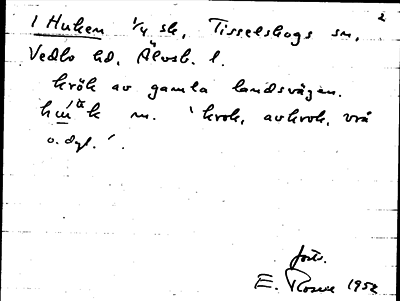 2
1 Huken 1/4 sk, Tisselskogs sn,
Vedbo hd, Älvsb. l.
krök av gamla landsvägen.
m. 'krok, avkrok, vrå
o.dyl.'.
forts.
E. Rosell 1952